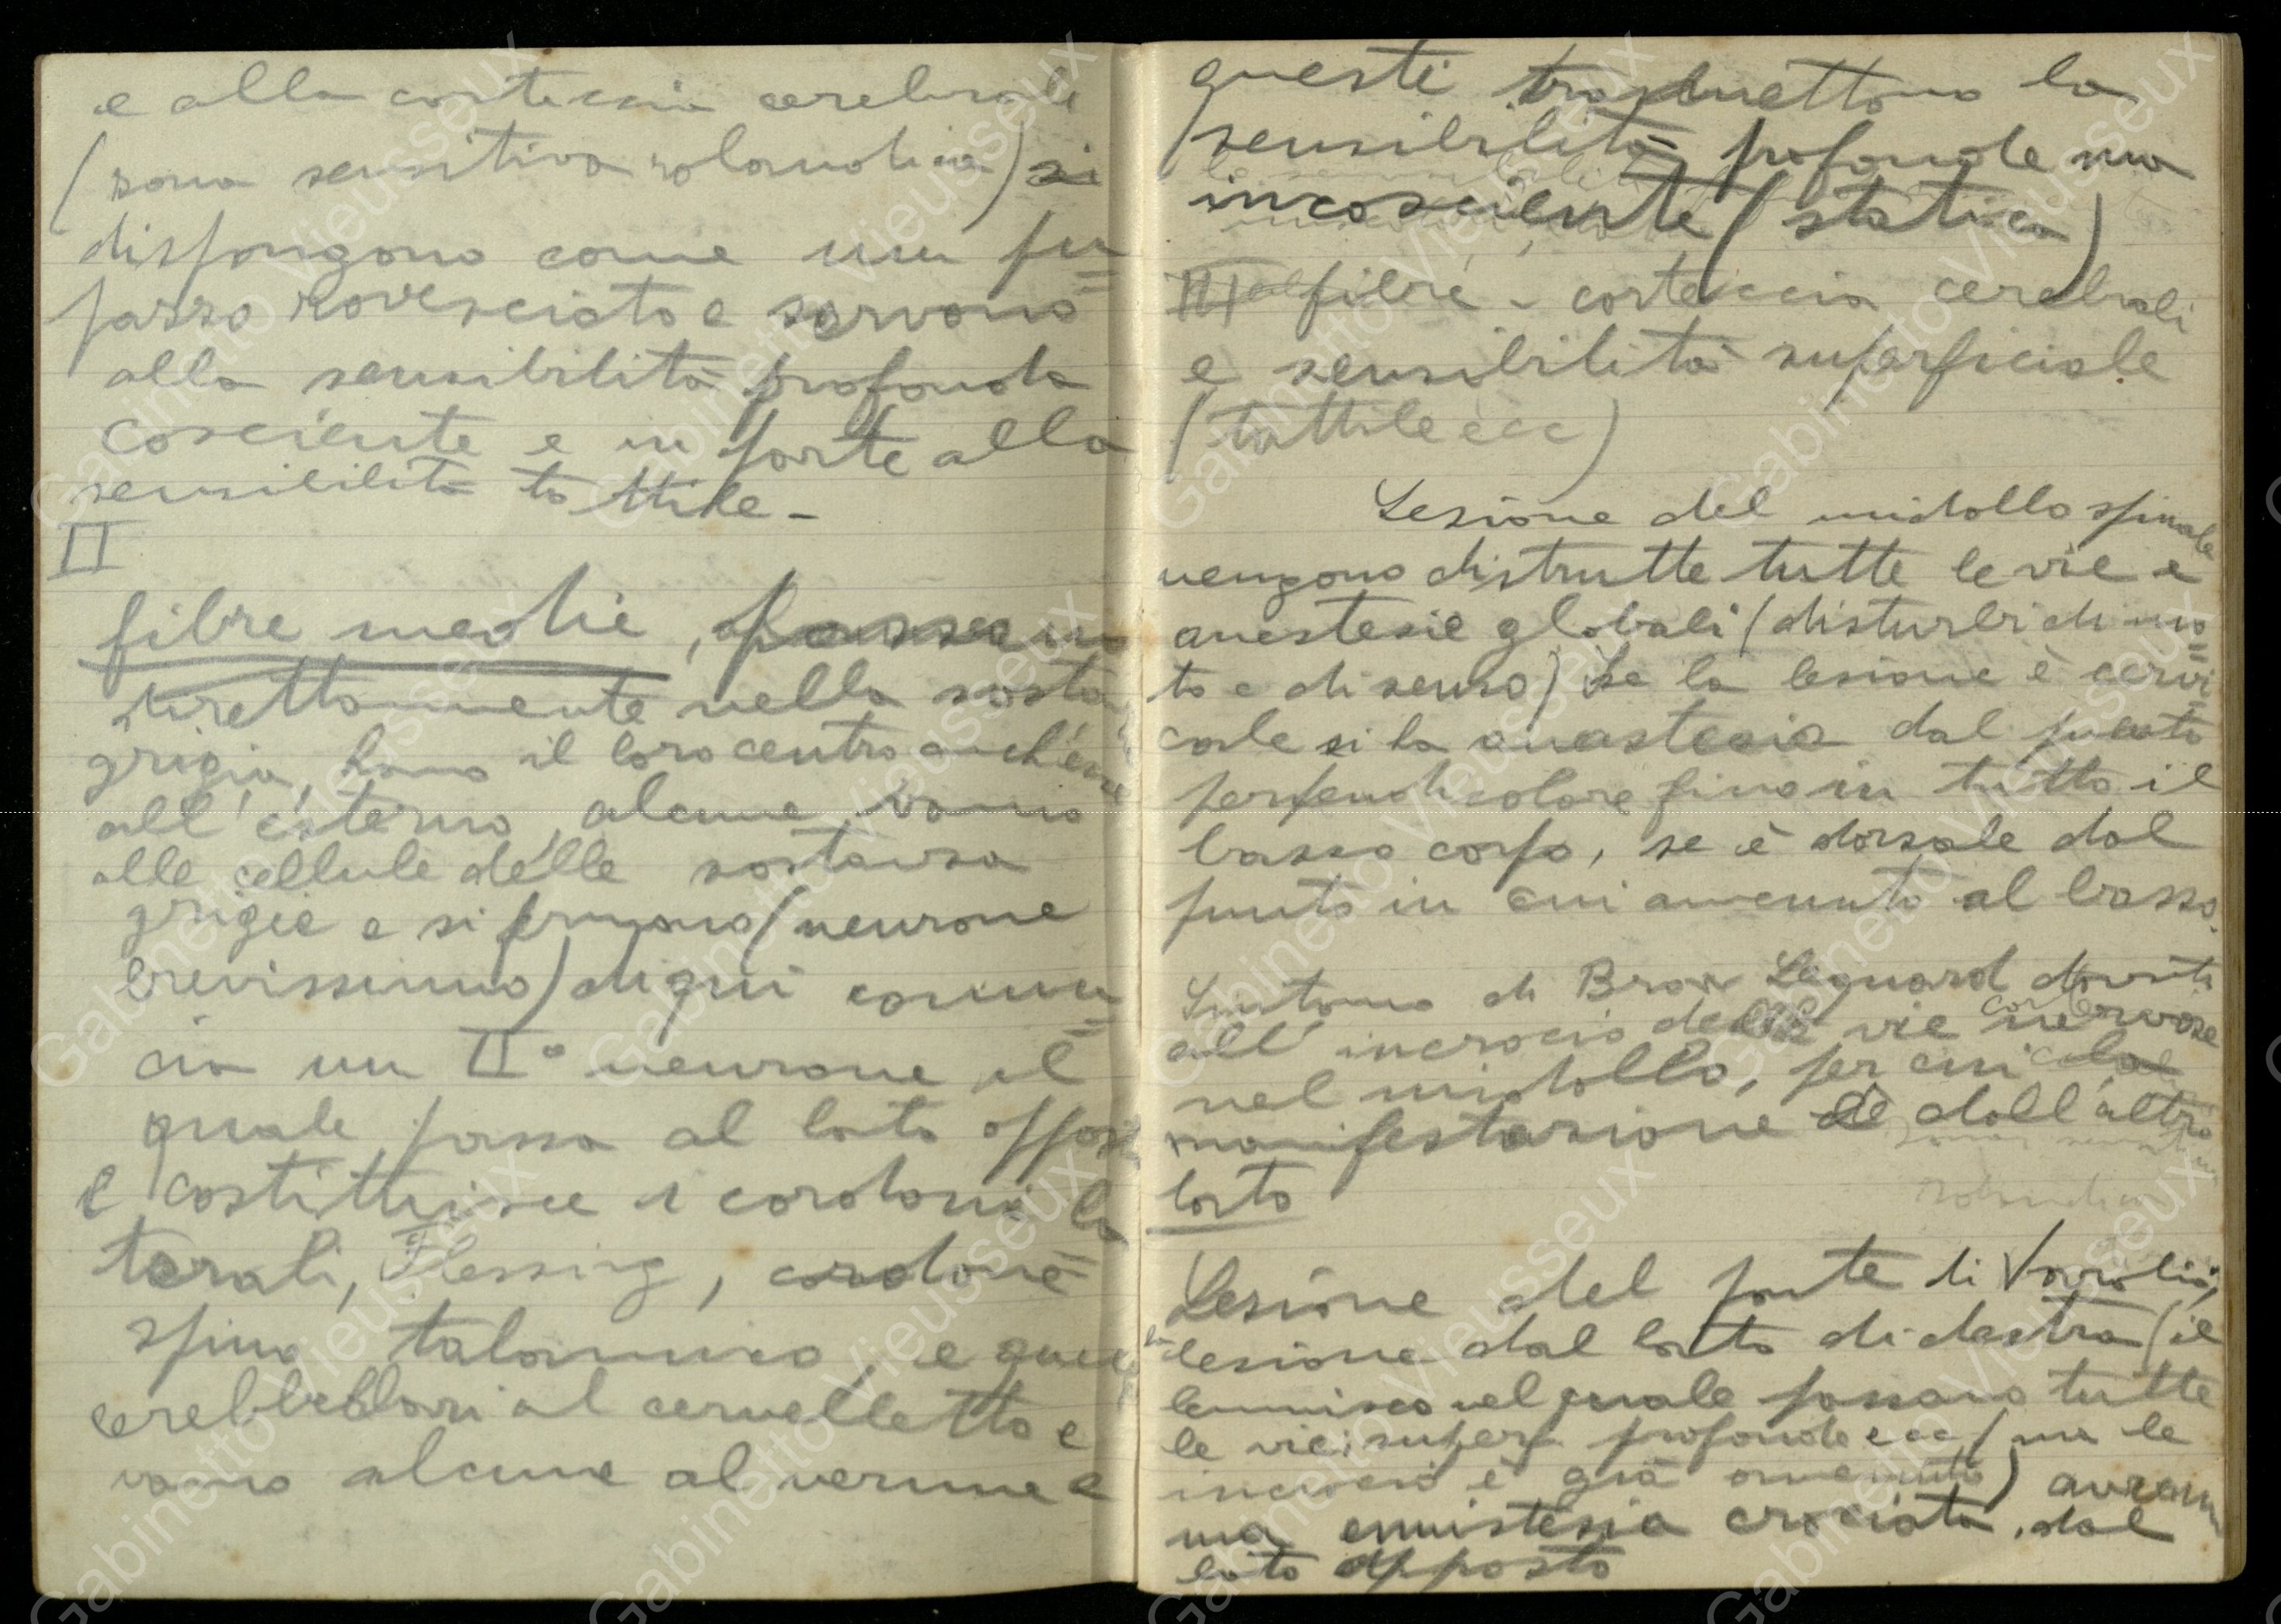 e alla corteccia cerebrale
(zona sensitiva rolandica) si
dispongono come un pu=
pazzo rovesciato e servono
alla sensibilità profonda
cosciente e in parte alla
sensibilità tattile -
II
fibre medie, passano
direttamente nella sosta
grigia, hano il loro centro anch'esse
all'esterno, alcune vanno
alle cellule delle sostanza
grigie e si fermano (neurone
brevissimo) di qui comin=
cia un II° neurone il
quale passa al lato oppost
e costituisce i cordoni la
terali, Flessing, cordone
spino talamico, e quei
cerebbellari al cervelletto e
vanno alcune al verme e
questi trasmettono la
sensibilità profonde ma
incosciente (statica)
III fibre - corteccia cerebrali
e sensibilità superficiale
(tattile ecc)
Lesione del midollo spinale
vengono distrutte tutte le vie e
anestesie globali (disturbi di mo=
to e di senso) Se la lesione è cervi
cale si ha anastesia dal punto
perpendicolare fino in tutto il
basso corpo, se è dorsale dal
punto in cui avvenuto al basso.
Sintomo di Bron Seguard dovuto
all'incrocio delle vie nervose
nel midollo, per cui la
manifestazione è dall'altro
lato
Lesione del ponte di Varolio,
lesione dal lato di destra (il
lemnisco nel quale passano tutte
le vie, superf profonde ecc/ ma le
incrocio è già avvenuto) avrem
ma emistesia crociata, dal
lato opposto